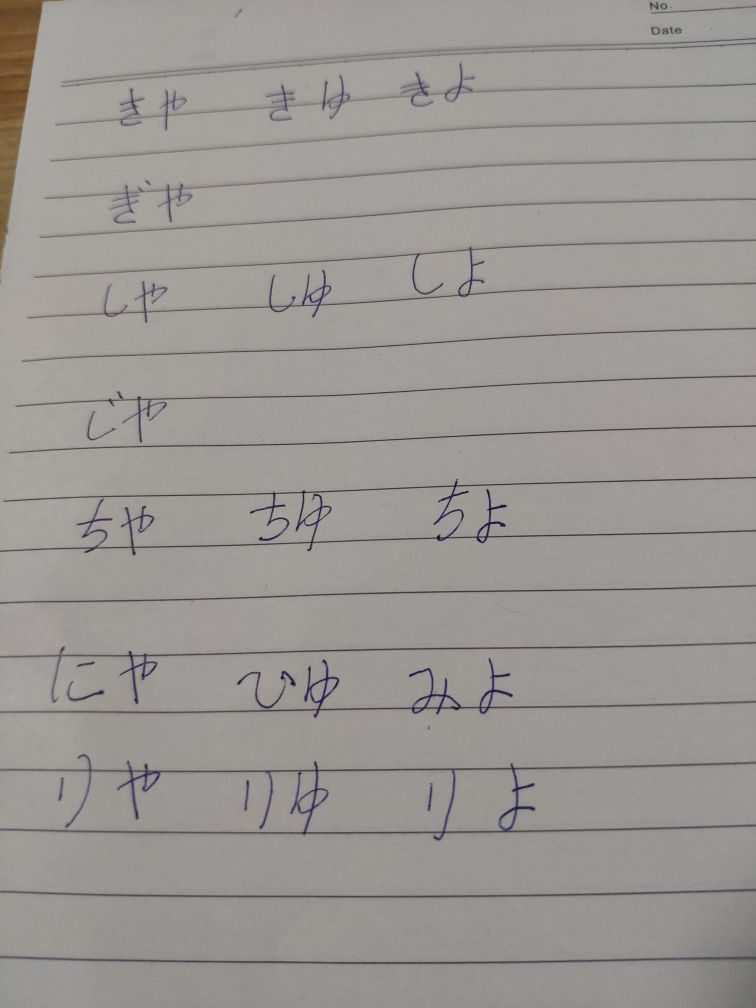 No.
Date
きや きゆ きよ
ぎや
しや しゆ しよ
じや
ちや ちゆ ちよ
にや ひゆ みよ
りや りゆ りよ